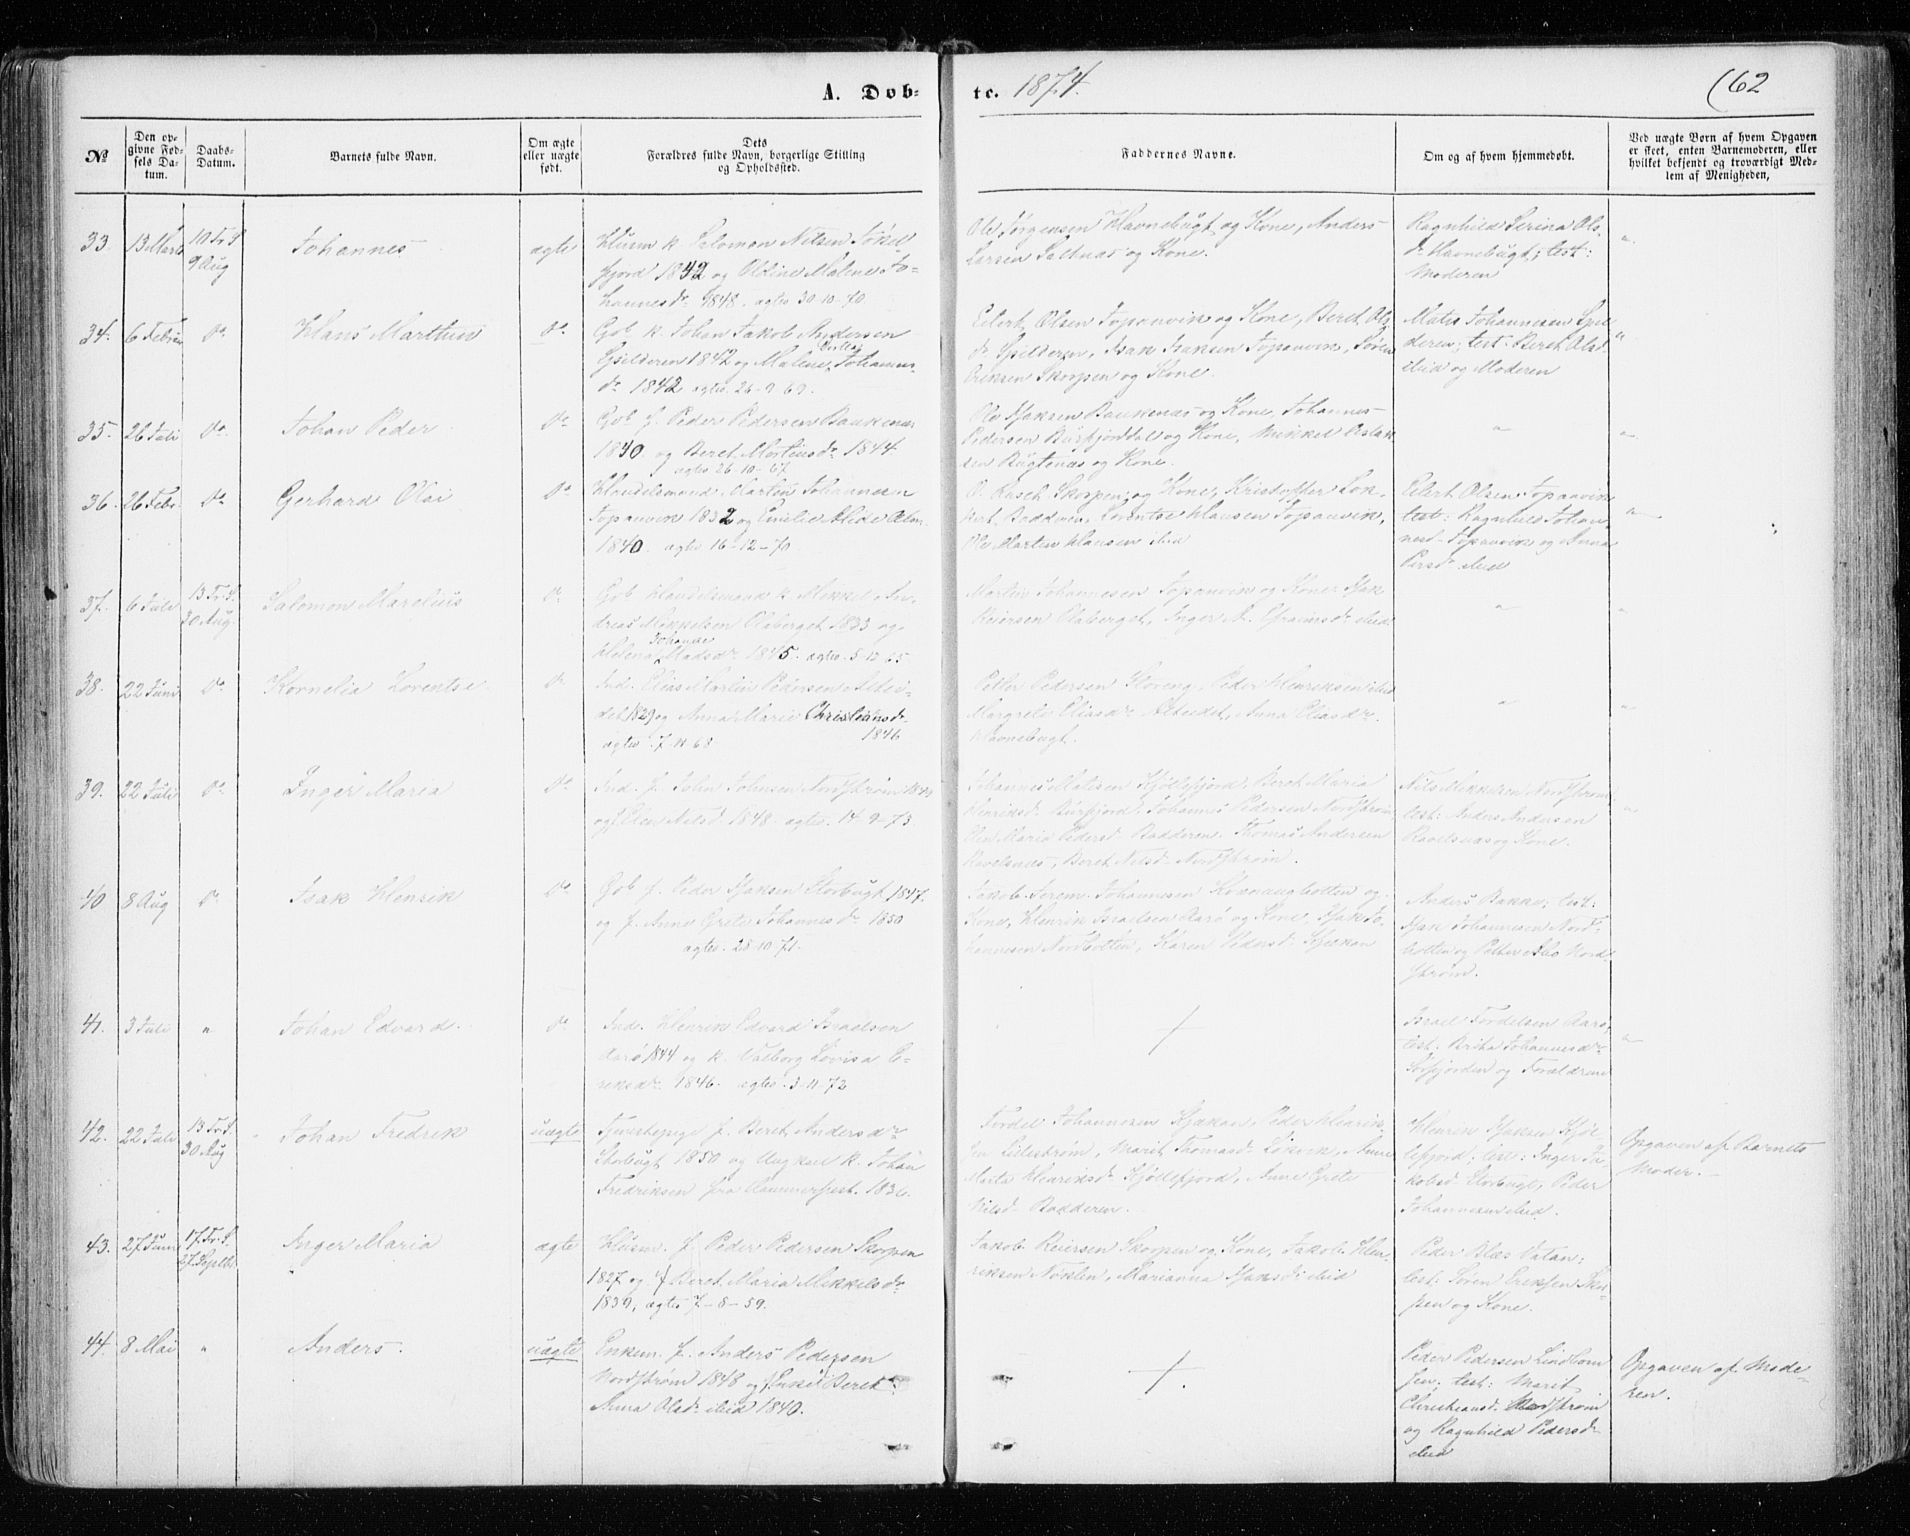 A. Dob-
te. 1874.
(62
No
Den op-
givne Fød-
sels Da-
tum.
Daabs-
Datum.
Barnets fulde Navn.
Om ægte
eller uægte
født.
Dets
Forældres fulde Navn, borgerlige Stilling
og Opholdssted.
Faddernes Navne.
Om og af hvem hjemmedøbt.
Ved uægte Børn af hvem Opgaven
er skeet, enten Barnemoderen, eller
hvilket bekjendt og troværdigt Med-
lem af Menigheden,
33. 13 Marts
9 Aug
Johannes
ægte
Salomon Nilsen Jøkel
fjord 1842 og Oldine Malene Jo-
hannesdr 1848. ægtev 30-10-70
Ole Jørgensen Havnebugt og Kone, Anders
Larsen Saltnæs og Kone.
Ragnhild Serina Ols-
dr Havnebugt; test:
Moderen
"
34. 6 Februar
Do
Hans Marthin
Do
Gbr k. Johan Jakob Andersen
Spilderen 1842 og Malene
dr 1842 ægtev 26-9 69.
Eilert Olsen Toppenvik og Kone, Beret Ols-
dr Spilderen, Isak Isaksen
Eriksen Skorpen og Kone.
Mats Johannesen Spil-
deren; test: Beret Olsdr
ibid og Moderen
"
35. 26 Juli
Do.
Johan Peder
Do
Gbr f. Peder Pedersen Baukenæs
1840. og Beret Mortensdr 1844
ægtev 26-10-67
Ole Isaksen Baukenæs og Kone, Johannes
Pedersen Burfjorddal og Kone, Mikkel
sen Bugtenæs og Kone.
"
"
36. 26 Febr.
Do
Gerhard Olai
Do
Handelsmand Martin Johannesen
1832 og Emilie Alide
1840. ægtev 16-12-70
O. Rasch Skorpen og Kone, Kristoffer Lok-
kert Badderen, Lorentse Hansen
Ole Martin Hansen ibid
Eilert Olsen
test: Ragnhild Johan-
og Anna
Persdr ibid
"
37. 6 Juli
13 Tr. S.
30 Aug.
Salomon Marelius
Do
Gbr Handelsmand k. Mikkel An-
dreas Mikkelsen Olaberget 1833 og
Johanne
Helene Madsdr 1845. ægtev. 5-12 65
Martin Johannesen og Kone, Isak
Reiersen Olaberget, Inger M. Efraimsdr ibid
"
"
38. 22 Juni
Do
Kornelia Lorentse
Do
Ind. Elias Martin Pedersen Altei-
det 1829 og Anna Marie Christiansdr
1846
ægtev. 7-11-68
Petter Pedersen Storeng, Peder Henriksen ibid
Margrete Eliasdr Alteidet, Anna Eliasdr
Havnebugt.
"
"
39. 22 Juli
Do
Inger Maria
Do
Ind. f. John Johnsen Nordstrøm
og Elen Nilsdr 1848. ægtev. 14-9-73.
Johannes Matisen Kjøllefjord, Beret Maria
Henriksdr Burfjord, Johannes Pedersen Nordstrøm,
Elen Maria Pedersdr Badderen. Thomas Andersen
Ravelsnæs, Beret Nilsdr Nordstrøm.
Nils Mikkelsen Nordstrøm
test: Anders Andersen
Ravelsnæs og Kone.
"
40 8 Aug
Do
Isak Henrik
Do
Gbr f. Peder Isaksen Storbugt 1847.
og f. Anne Grete Johannesdr 1850
ægtev. 28-10-71.
Jakob Jerem. Johannesen Kvænangbotten og
Kone, Henrik Israelsen Aarø og Kone, Isak Jo-
hannesen Nordbotten, Karen Pedersdr Kjækan
Anders Bakke; test:
Isak Johannesen Nord-
botten og Petter Abo Nord-
strøm.
41. 3 Juli
"
Johan Edvard.
Do
Ind. Henrik Edvard Israelsen
Aarø 1844 og k. Valborg Lovisa E-
riksdr 1846. ægtev. 3-11-72
Israel Fordelsen Aarø;
test: Brita Johannesdr
Sørfjorden og Forældrene
"
42. 22 Juli
13 Tr. S.
30 Aug
Johan Fredrik
uægte
Tjenestepige f. Beret Andersdr
Storbugt 1850 og Ungkarl k. Johan
Fredriksen fra Hammerfest.
Fordel Johannesen Kjækan, Peder Henrik-
sen Lillestrøm, Marit Thomasdr Løkvik, Anne
Marta Henriksdr Kjøllefjord, Anne Grete
Nilsdr Badderen.
Henrik Isaksen Kjøl-
lefjord; test: Inger Ja-
kobsdr Storbugt, Peder
Johannesen ibid.
Opgaven af Barnets
Moder.
43. 27 Juni
17. Tr. S.
27. Septbr
Inger Maria
ægte
Husm. f. Peder Pedersen Skorpen
1827 og f Beret Maria Mikkelsdr
1839, ægtev 7-8-59.
Jakob Reiersen Skorpen og Kone, Jakob Hen-
riksen Nøklen, Marianna Isaksdr ibid
Peder Blæs Vatan;
test: Søren Eriksen Skor-
pen og Kone.
44. 8 Mai
"
Anders.
uægte
Enkem. f. Anders Pedersen
Nordstrøm 1848 og Enke Beret
Anna Olsdr ibid 1840.
Peder Pedersen Lindbom
test: Marit
Christiansdr Nordstrøm
og Ragnhild Pedersdr
ibid
Opgaven af Mode-
ren.